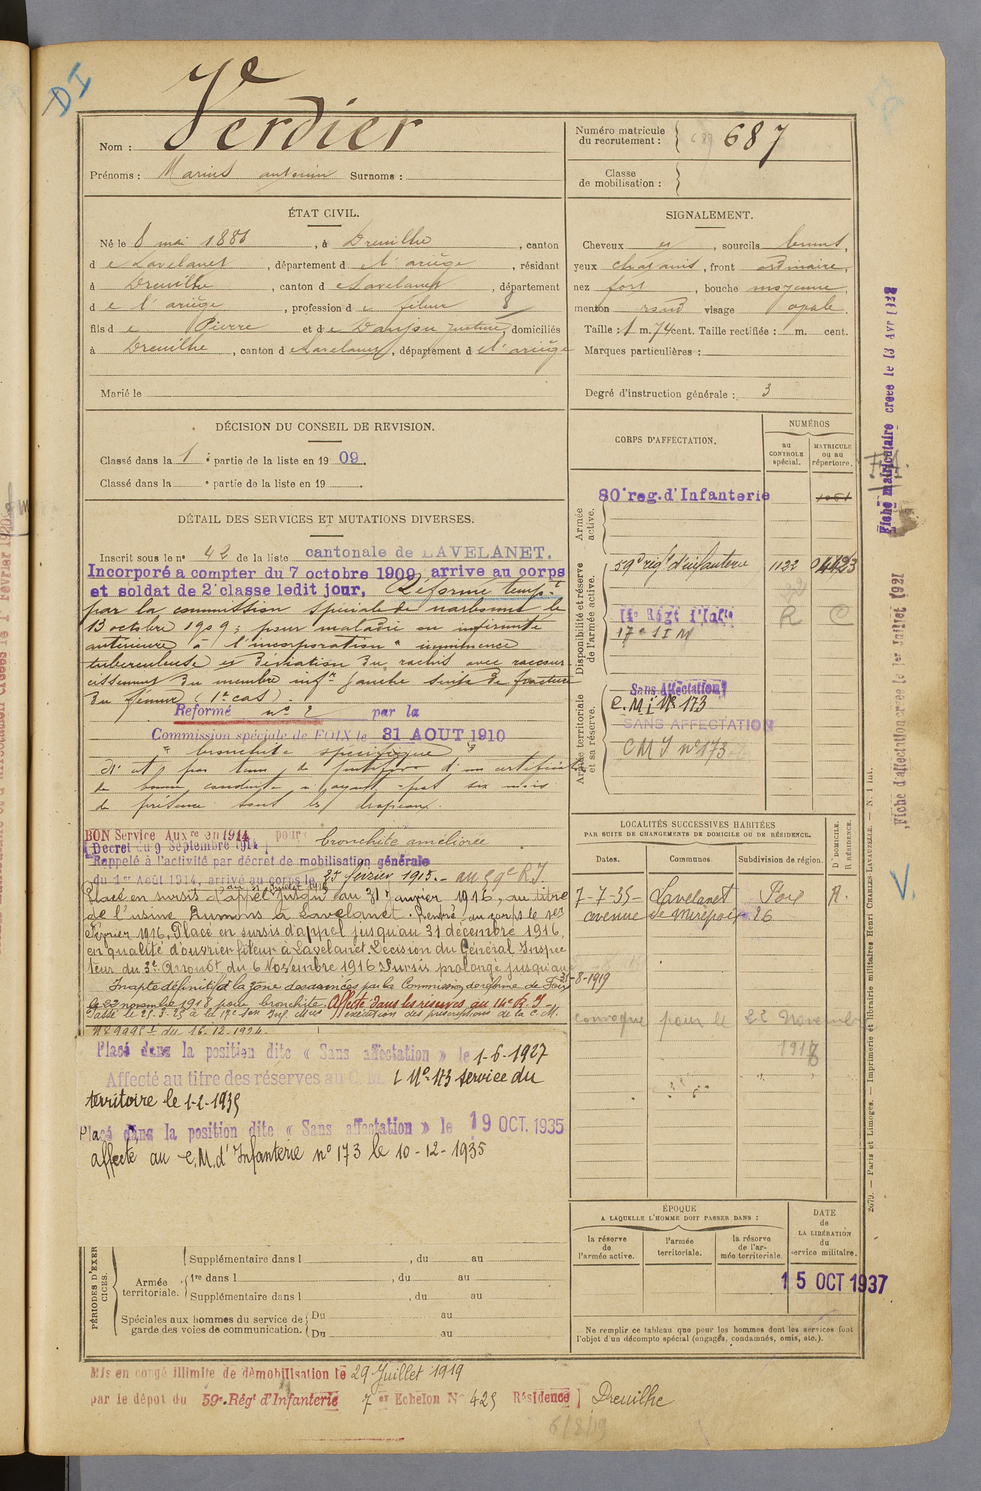 DI
Verdier
Nom :
Prénoms : Marius antonin Surnoms :
Numéro matricule
du recrutement : 687
Classe
de mobilisation :
ÉTAT CIVIL.
Né le 8 mai 1888, à Dreuilhe, canton
de Lavelanet, département de l'ariège, résidant
à Dreuilhe, canton de Lavelanet, département
de l'ariège, profession de fileur 8
fils de Pierre et de domiciliés
à Dreuilhe, canton de Lavelanet, département de l'ariège
Marié le
SIGNALEMENT.
Cheveux et, sourcils bruns,
yeux chatains, front ordinaire,
nez fort, bouche moyenne,
menton rond visage ovale.
Taille : 1 m. 74 cent. Taille rectifiée : m. cent.
Marques particulières :
Degré d'instruction générale : 3
DÉCISION DU CONSEIL DE REVISION.
Classé dans la 1e partie de la liste en 1909.
Classé dans la e partie de la liste en 19 .
DÉTAIL DES SERVICES ET MUTATIONS DIVERSES.
Inscrit sous le n° 42 de la liste cantonale de LAVELANET.
Incorporé a compter du 7 octobre 1909, arrive au corps
et soldat de 2e classe ledit jour, Réformé tempre
par la commission spéciale de narbonne le
13 octobre 1909 ; pour maladie ou infirmité
antérieure à l'incorporation " imminence
tuberculeuse et déviation du rachis avec raccour-
cissement du membre infr gauche suite de fracture
du fémur (1er cas).
Reformé n° 2 par la
Commission spéciale de FOIX le 31 AOUT 1910
" bronchite spécifique "
N'est pas tenu de justifier d'un certificat
de bonne conduite n'ayant pas six mois
de présence sous les drapeaux.
BON Service Auxre en 1914 pour bronchite améliorée
(Décret du 9 Septembre 1914)
Rappelé à l'activité par décret de mobilisation générale
du 1er Août 1914, arrivé au corps le 25 février 1915. - au 59e R.I.
Placé en sursis d'appel jusqu'au 31 janvier 1916, au titre
de l'usine Dumons à Lavelanet. Rentré au corps le 1er
février 1916. Placé en sursis d'appel jusqu'au 31 décembre 1916,
en qualité d'ouvrier fileur à Lavelanet. Décision du Général Inspec
teur du 3e Arrondt du 6 Novembre 1916. Sursis prolongé jusqu'au
31-8-1919
Inapte définitif à la zone des armées par la Commission de réforme de Foix
le 22 novembre 1918 pour bronchite. Affecté dans les réserves au 14e R.I.
exécution des prescriptions de la C.M.
N° 9995 du 16.12.1924.
Placé dans la position dite « Sans affectation » le 1-6-1927
Affecté au titre des réserves au C.M.I N° 173 service du
territoire le 1-1-1935
Placé dans la position dite « Sans affectation » le 19 OCT. 1935
affecté au C.M. d'Infanterie n° 173 le 10-12-1935
CORPS D'AFFECTATION.
NUMÉROS
au CONTROLE spécial.
MATRICULE ou au répertoire.
Armée active.
80e reg. d'Infanterie
Disponibilité et réserve de l'armée active.
59e régt d'infanterie 1122
14e Régt d'Infie R
17e S I M
Armée territoriale et sa réserve.
Sans Affectation
C. M i N° 173
SANS AFFECTATION
C M I n° 173
LOCALITÉS SUCCESSIVES HABITÉES
PAR SUITE DE CHANGEMENTS DE DOMICILE OU DE RÉSIDENCE.
Dates. Communes. Subdivision de région.
D DOMICILE. R RÉSIDENCE.
7-7-35 Lavelanet Foix R.
avenue de Mirepoix 26
convoqué pour le 22 Novembre
1918
ÉPOQUE
A LAQUELLE L'HOMME DOIT PASSER DANS :
la réserve de l'armée active.
l'armée territoriale.
la réserve de l'armée territoriale.
DATE de LA LIBÉRATION du service militaire.
15 OCT 1937
Ne remplir ce tableau que pour les hommes dont les services font
l'objet d'un décompte spécial (engagés, condamnés, omis, etc.).
PÉRIODES D'EXERCICES.
Armée territoriale.
Supplémentaire dans l , du au
1re dans l , du au
Supplémentaire dans l , du au
Spéciales aux hommes du service de
garde des voies de communication.
Du au
Du au
Mis en congé illimité de démobilisation le 29 Juillet 1919
par le dépot du 59e Régt d'Infanterie 7er Echelon N° 425 Résidence Dreuilhe
6/8/19
Fiche matriculaire créée le 13 Avr
Fiche d'affectation créée le 1er Juillet 1921
2679. — Paris et Limoges. — Imprimerie et librairie militaires Henri CHARLES-LAVAUZELLE. — N. 1 int.